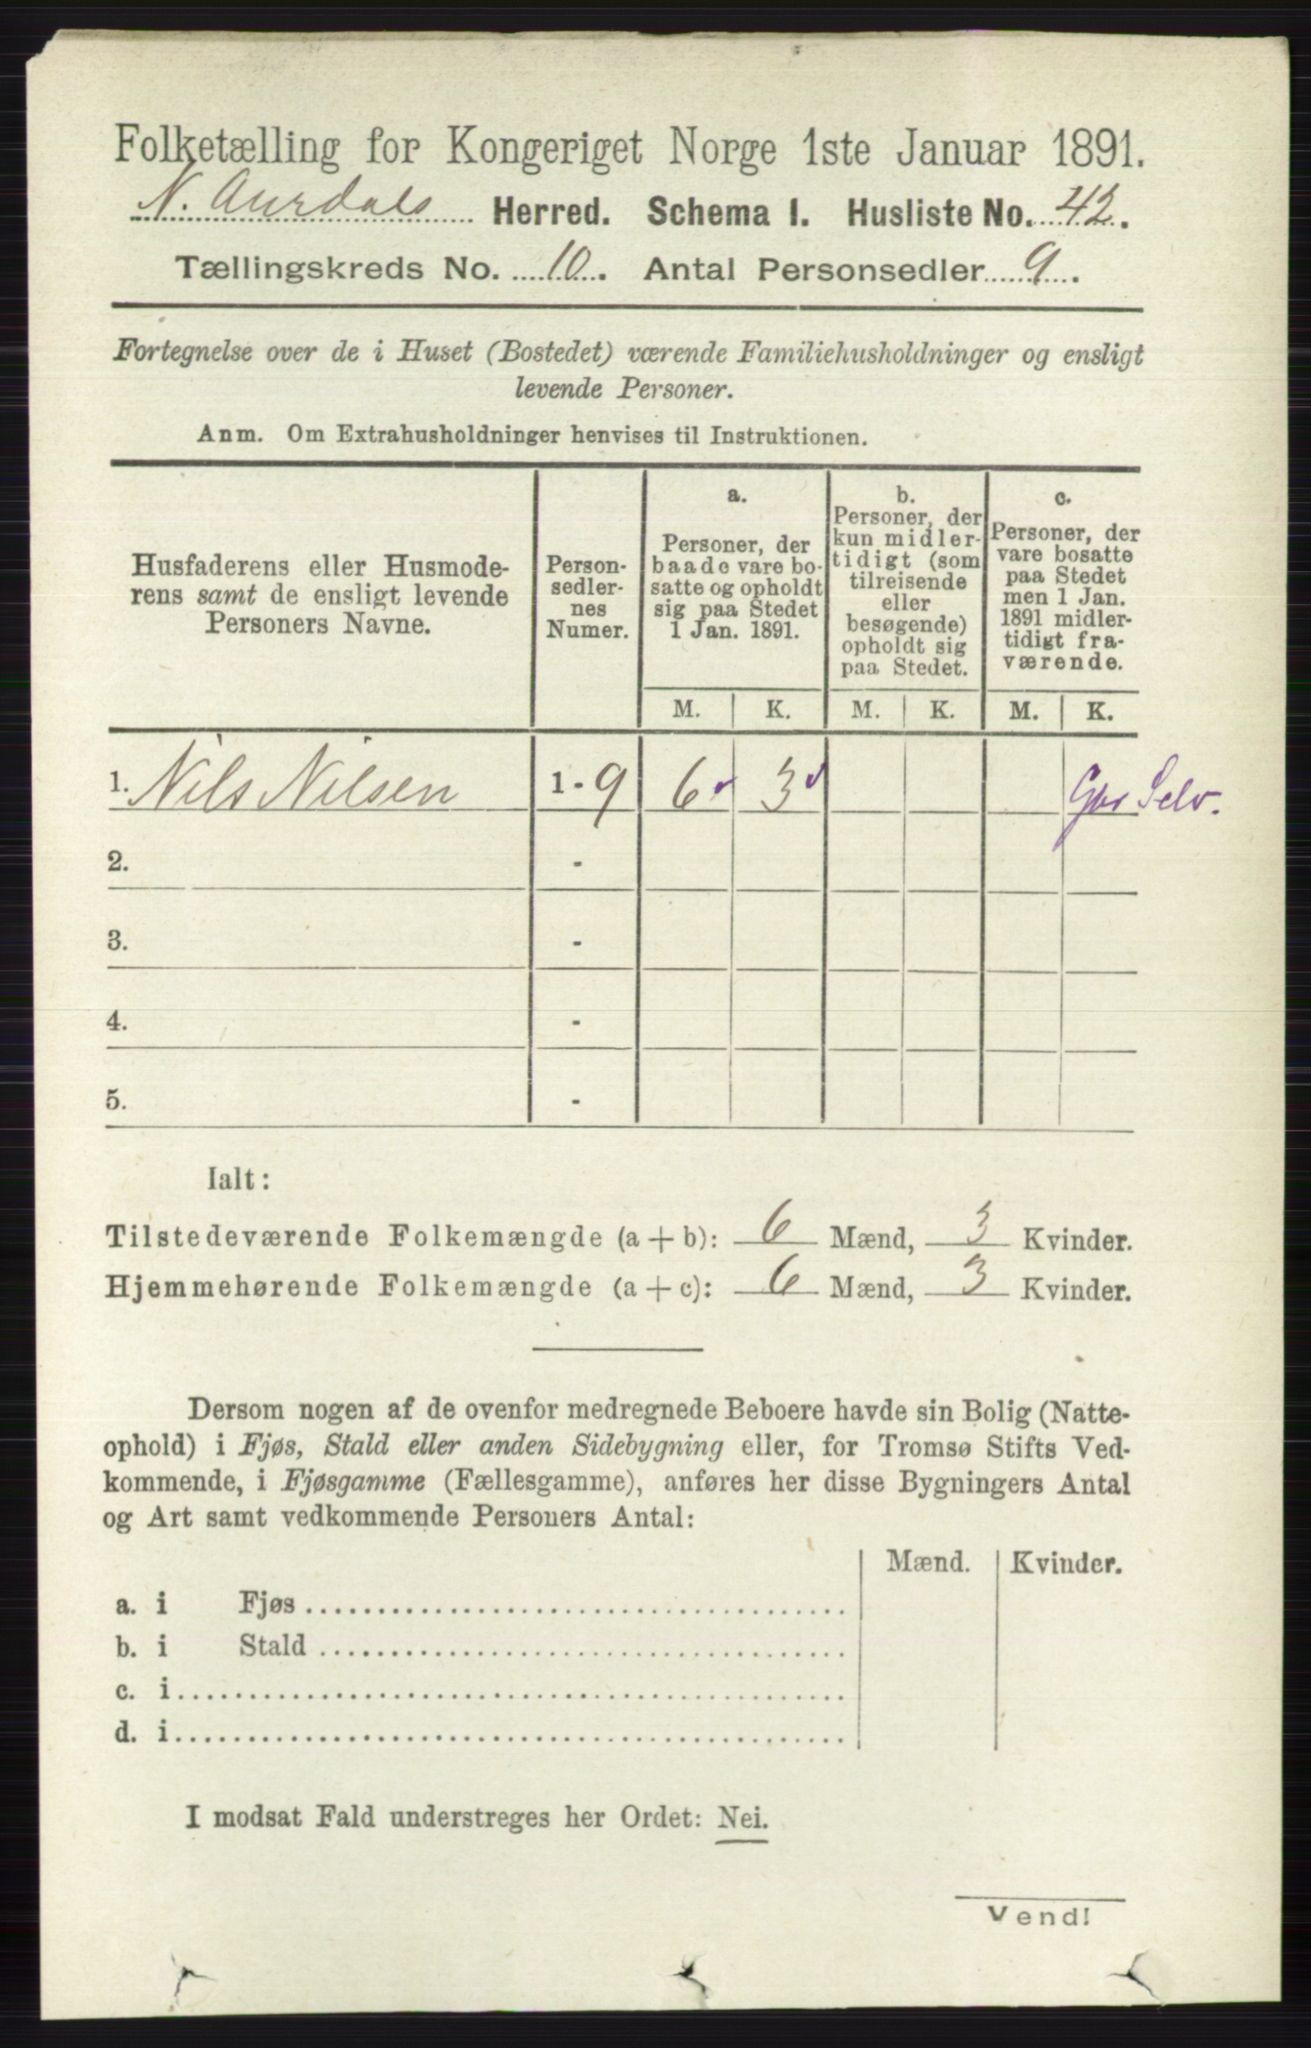 Folketælling for Kongeriget Norge 1ste Januar 1891.
N. Aurdals Herred. Schema I. Husliste No. 42.
Tællingskreds No. 10. Antal Personsedler 9.
Fortegnelse over de i Huset (Bostedet) værende Familiehusholdninger og ensligt
levende Personer.
Anm. Om Extrahusholdninger henvises til Instruktionen.
Husfaderens eller Husmode-
rens samt de ensligt levende
Personers Navne.
Person-
sedler-
nes
Numer.
a.
Personer, der
baade vare bo-
satte og opholdt
sig paa Stedet
1 Jan. 1891.
b.
Personer, der
kun midler-
tidigt (som
tilreisende
eller
besøgende)
opholdt sig
paa Stedet.
c.
Personer, der
vare bosatte
paa Stedet
men 1 Jan.
1891 midler-
tidigt fra-
værende.
M. K. M. K. M. K.
1. Nils Nilsen 1 - 9 6 3 Gbr Selv.
2. -
3. -
4. -
5. -
Ialt:
Tilstedeværende Folkemængde (a + b): 6 Mænd, 3 Kvinder.
Hjemmehørende Folkemængde (a + c): 6 Mænd, 3 Kvinder.
Dersom nogen af de ovenfor medregnede Beboere havde sin Bolig (Natte-
ophold) i Fjøs, Stald eller anden Sidebygning eller, for Tromsø Stifts Ved-
kommende, i Fjøsgamme (Fællesgamme), anføres her disse Bygningers Antal
og Art samt vedkommende Personers Antal:
Mænd. Kvinder.
a. i Fjøs
b. i Stald
c. i
d. i
I modsat Fald understreges her Ordet: Nei.
Vend!